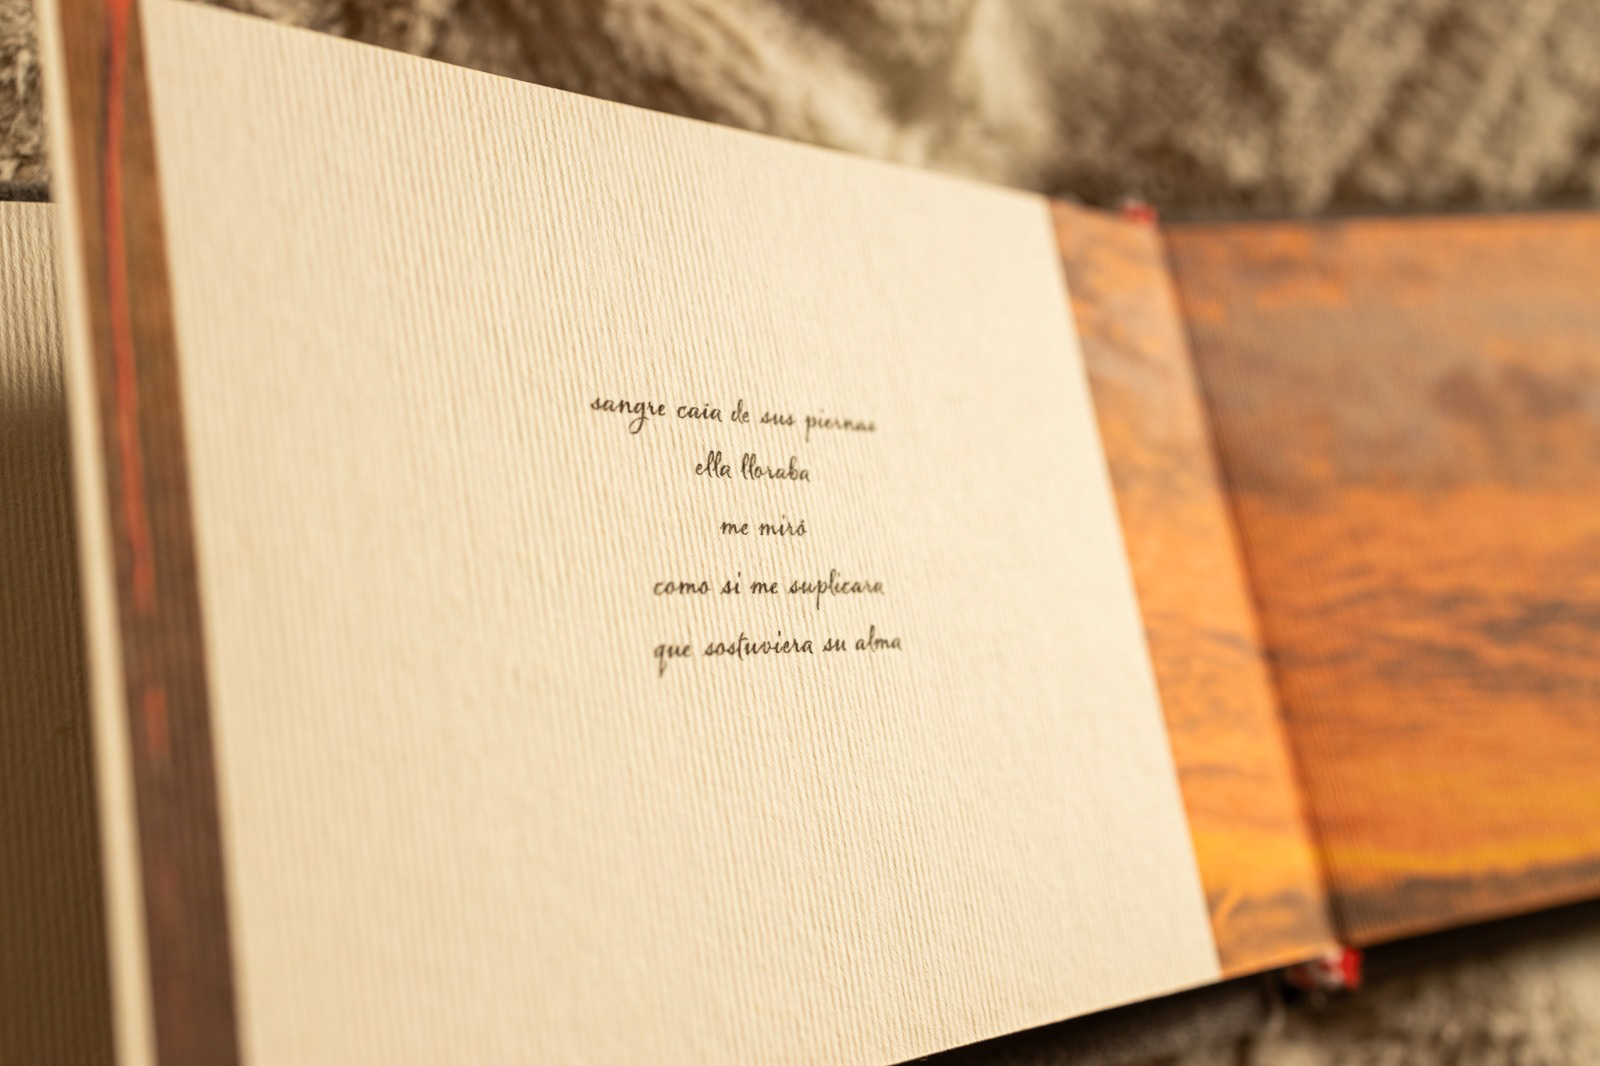 sangre caía de sus piernas
ella lloraba
me miró
como si me suplicara
que sostuviera su alma